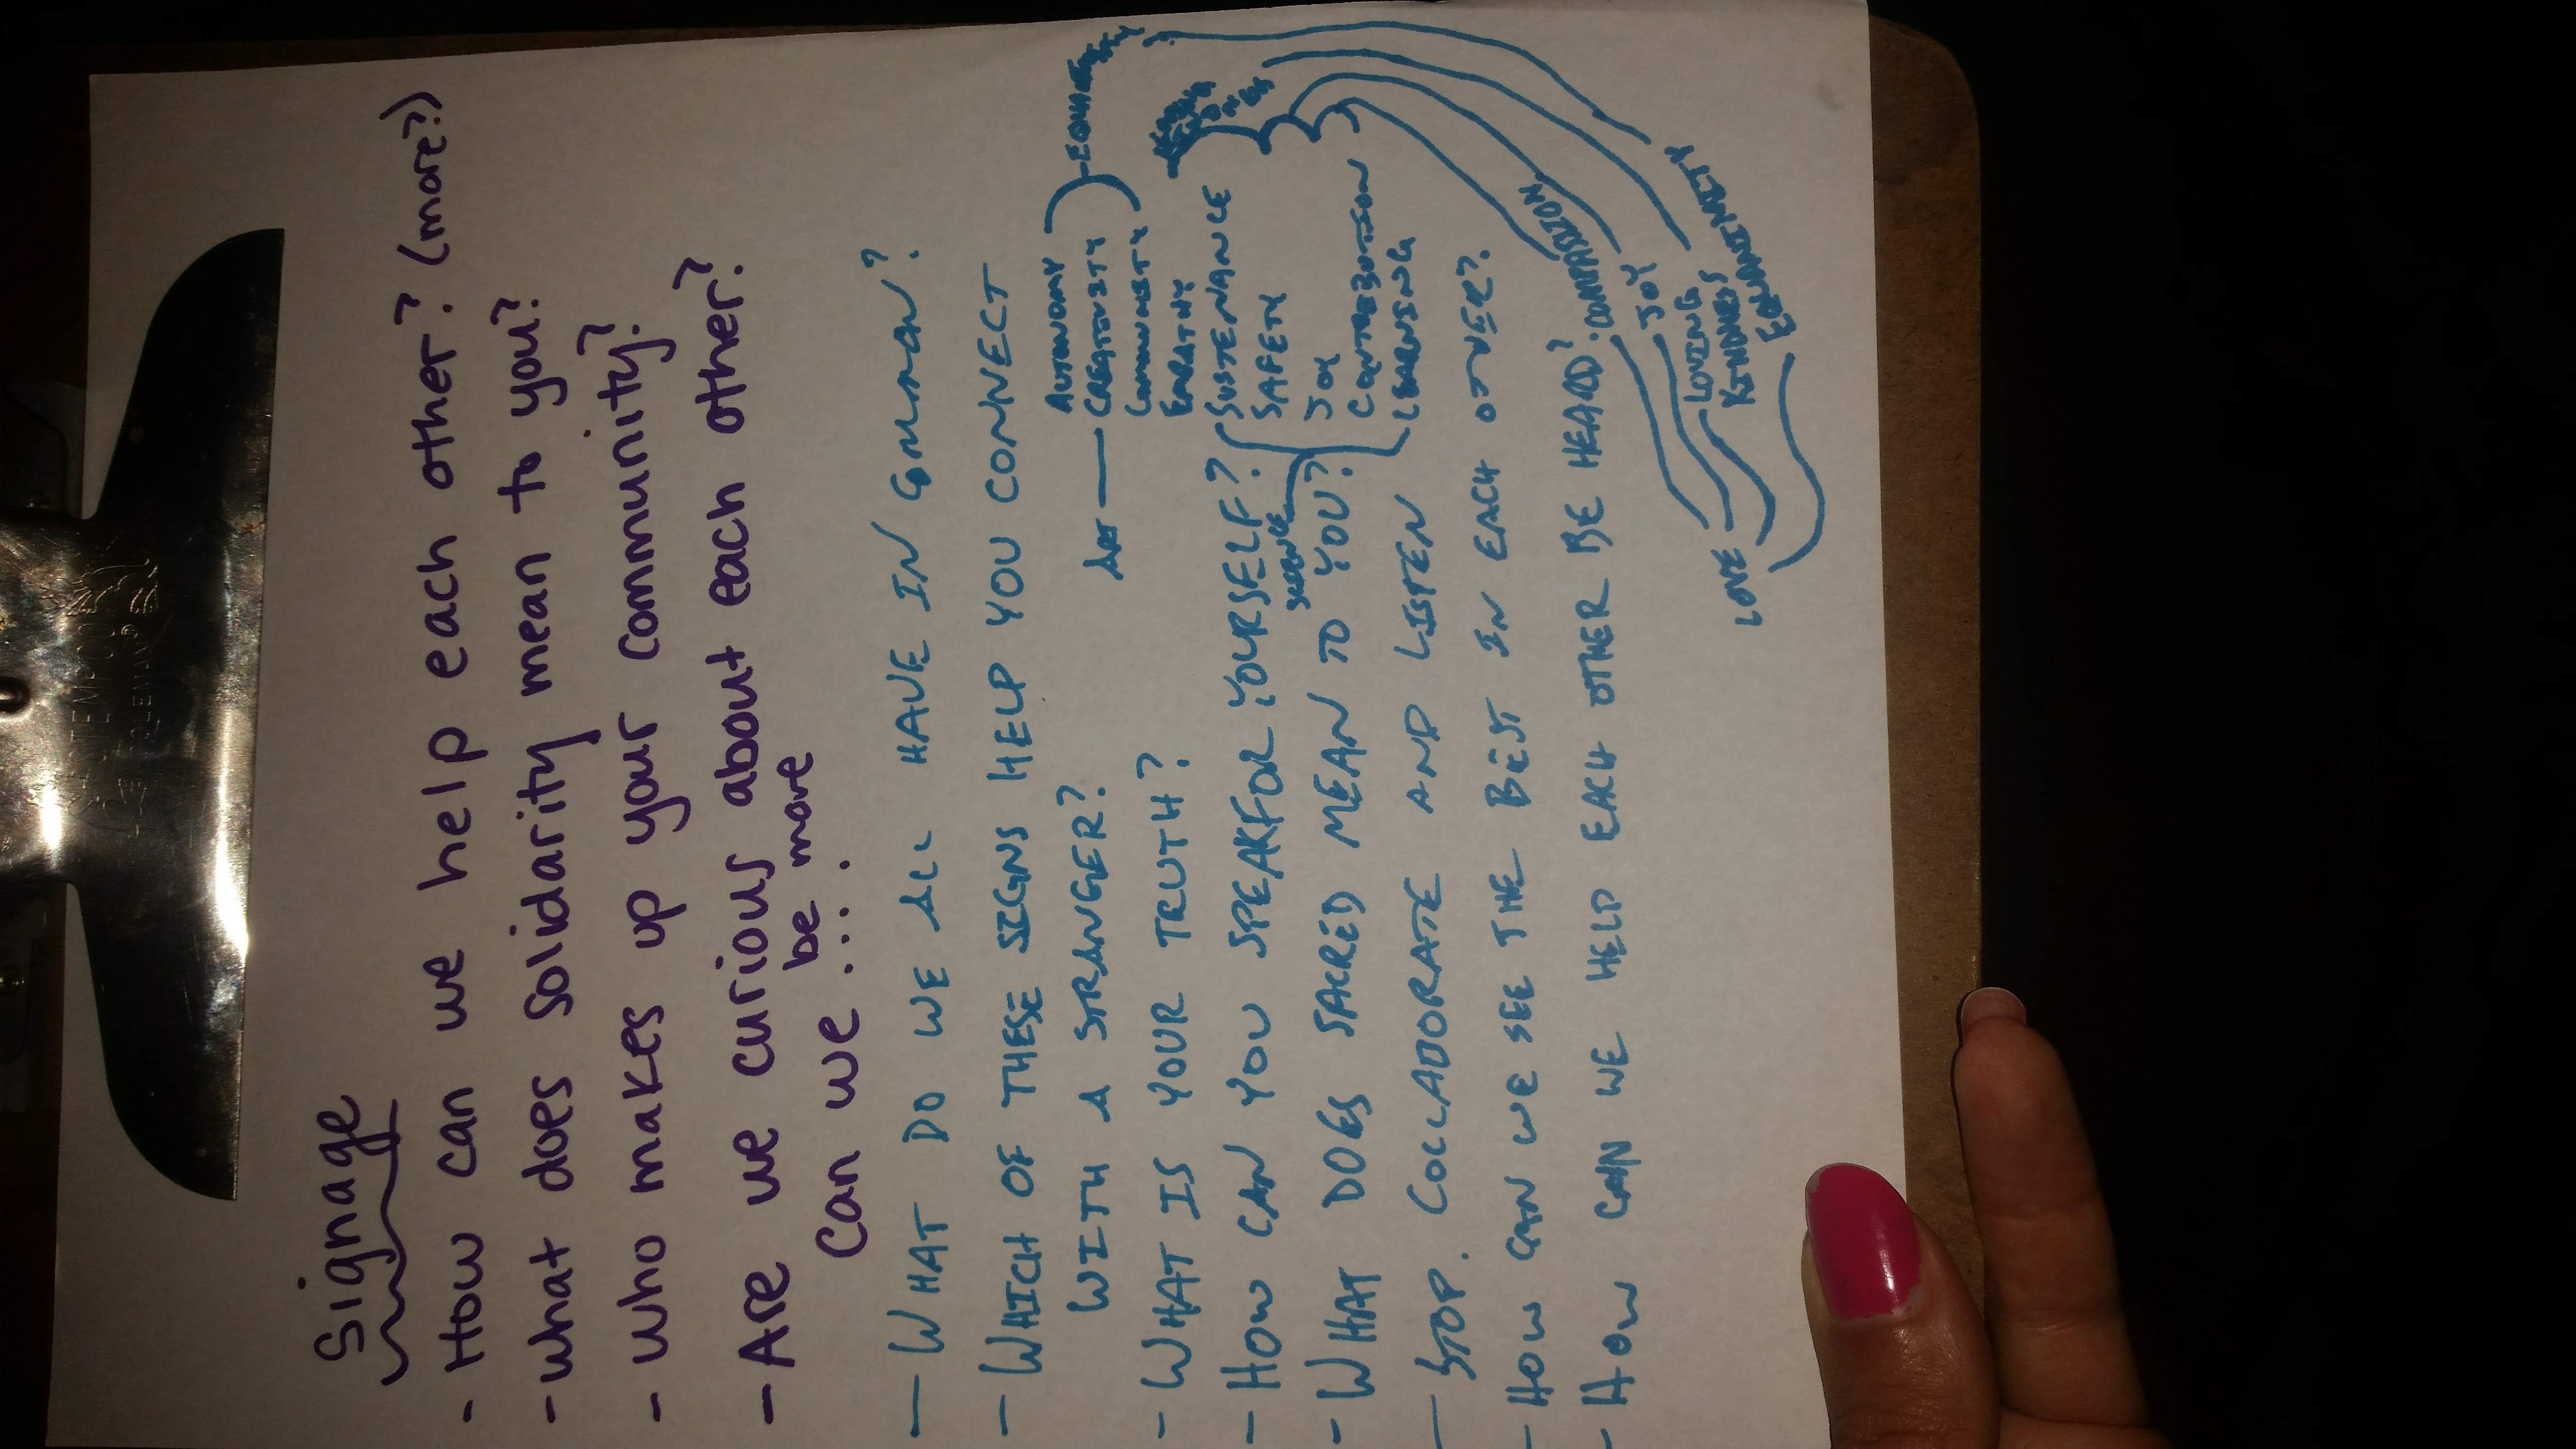 Signage
- How can we help each other? (more?)
- What does solidarity mean to you?
- Who makes up your community?
- Are we curious about each other?
be more
Can we ....
- WHAT DO WE ALL HAVE IN COMMON?
- WHICH OF THESE SIGNS HELP YOU CONNECT
WITH A STRANGER?
- WHAT IS YOUR TRUTH?
- HOW CAN YOU SPEAK FOR YOURSELF?
- WHAT DOES SACRED MEAN TO YOU?
- STOP. COLLABORATE AND LISTEN
- HOW CAN WE SEE THE BEST IN EACH OTHER?
- HOW CAN WE HELP EACH OTHER BE HEARD?
ART
AUTONOMY
CREATIVITY
COMMUNITY
EMPATHY
SCIENCE
SUSTENANCE
SAFETY
JOY
CONTRIBUTION
LEARNING
LOVE
COMPASSION
JOY
LOVING
KINDNESS
EQUANIMITY